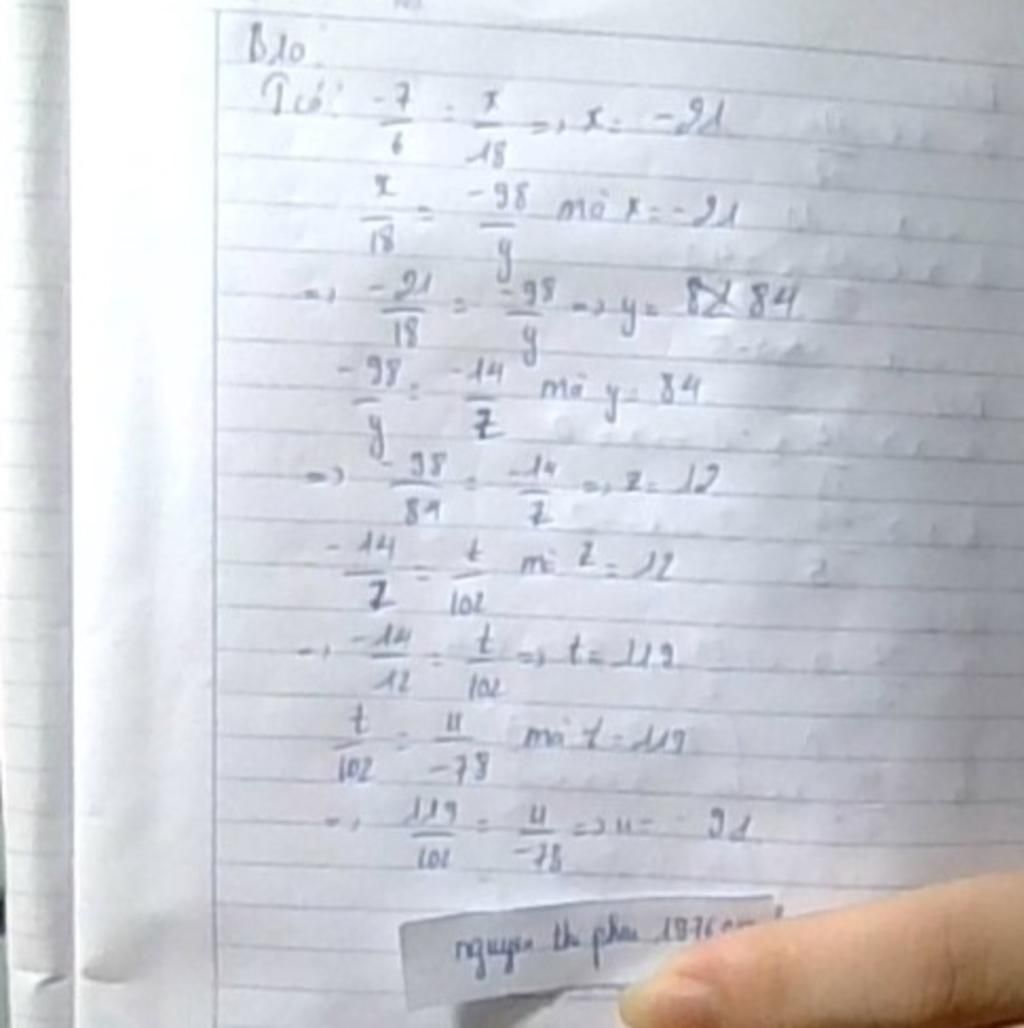 B10:
Ta có: -7/6 = x/18 => x = -21
x/18 = -98/y mà x = -21
=> -21/18 = -98/y => y = 84
-98/y = -14/z mà y = 84
=> -98/84 = -14/z => z = 12
-14/z = t/102 mà z = 12
=> -14/12 = t/102 => t = 119
t/102 = u/-78 mà t = 119
=> 119/102 = u/-78 => u = 91
nguyen thi